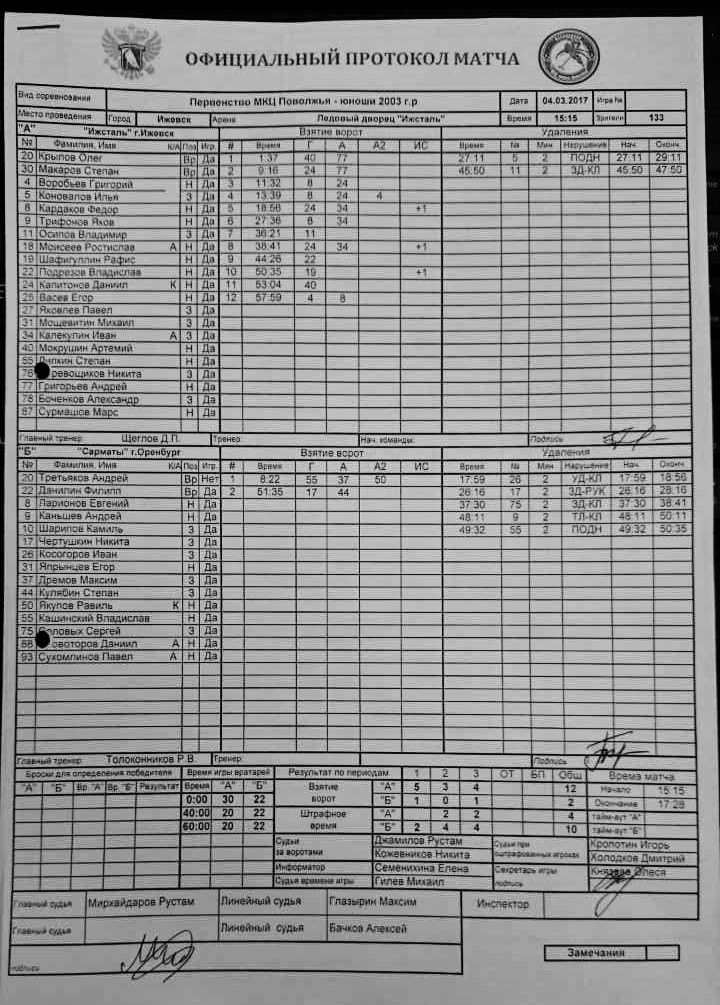 ОФИЦИАЛЬНЫЙ ПРОТОКОЛ МАТЧА
Вид соревнования Первенство МКЦ Поволжья - юноши 2003 г.р Дата 04.03.2017 Игра №
Место проведения Город Ижевск Арена Ледовый дворец "Ижсталь" Время 15:15 Зрители 133
"А" "Ижсталь" г.Ижевск Взятие ворот Удаления
№ Фамилия, Имя К/А Поз Игр. # Время Г А А2 ИС Время № Мин Нарушение Нач. Оконч.
20 Крылов Олег Вр Да 1 1:37 40 77 27:11 5 2 ПОДН 27:11 29:11
30 Макаров Степан Вр Да 2 9:16 24 77 45:50 11 2 ЗД-КЛ 45:50 47:50
4 Воробьев Григорий Н Да 3 11:32 8 24
5 Коновалов Илья З Да 4 13:39 8 24 4
8 Кардаков Федор Н Да 5 18:56 24 34 +1
9 Трифонов Яков Н Да 6 27:36 8 34
11 Осипов Владимир З Да 7 36:21 11
18 Моисеев Ростислав А Н Да 8 38:41 24 34 +1
19 Шафигуллин Рафис Н Да 9 44:26 22
22 Подрезов Владислав Н Да 10 50:35 19 +1
24 Капитонов Даниил К Н Да 11 53:04 40
25 Васев Егор Н Да 12 57:59 4 8
27 Яковлев Павел З Да
31 Мощевитин Михаил З Да
34 Калекулин Иван А З Да
40 Мокрушин Артемий Н Да
55 Липкин Степан Н Да
76 ревощиков Никита З Да
77 Григорьев Андрей Н Да
78 Боченков Александр З Да
87 Сурмашов Марс Н Да
Главный тренер Щеглов Д.П. Тренер: Нач. команды: Подпись
"Б" "Сарматы" г.Оренбург Взятие ворот Удаления
№ Фамилия, Имя К/А Поз Игр. # Время Г А А2 ИС Время № Мин Нарушение Нач. Оконч
20 Третьяков Андрей Вр Нет 1 8:22 55 37 50 17:59 26 2 УД-КЛ 17:59 18:56
22 Данилин Филипп Вр Да 2 51:35 17 44 26:16 17 2 ЗД-РУК 26:16 28:16
8 Ларионов Евгений Н Да 37:30 75 2 ЗД-КЛ 37:30 38:41
9 Каньшев Андрей Н Да 48:11 9 2 ТЛ-КЛ 48:11 50:11
10 Шарипов Камиль З Да 49:32 55 2 ПОДН 49:32 50:35
17 Чертушкин Никита Н Да
26 Косогоров Иван З Да
31 Япрынцев Егор Н Да
37 Дремов Максим З Да
44 Кулябин Степан З Да
50 Якупов Равиль К Н Да
55 Кашинский Владислав Н Да
75 ловых Сергей З Да
88 овоторов Даниил А Н Да
93 Сухомлинов Павел А Н Да
Главный тренер Толоконников Р.В. Тренер: Подпись
Броски для определения победителя Время игры вратарей Результат по периодам 1 2 3 ОТ БП Общ Время матча
"А" "Б" Вр. "А" Вр. "Б" Результат Время "А" "Б" Взятие ворот "А" 5 3 4 12 Начало 15:15
0:00 30 22 "Б" 1 0 1 2 Окончание 17:28
40:00 20 22 Штрафное время "А" 2 2 4 тайм-аут "А"
60:00 20 22 "Б" 2 4 4 10 тайм-аут "Б"
Судьи за воротами Джамилов Рустам Судьи при оштрафованных игроках Кропотин Игорь
Кожевников Никита Холодков Дмитрий
Информатор Семенихина Елена Секретарь игры Князева Олеся
Судья времени игры Гилев Михаил подпись
Главный судья Мирхайдаров Рустам Линейный судья Глазырин Максим Инспектор
Главный судья Линейный судья Бачков Алексей
подпись Замечания